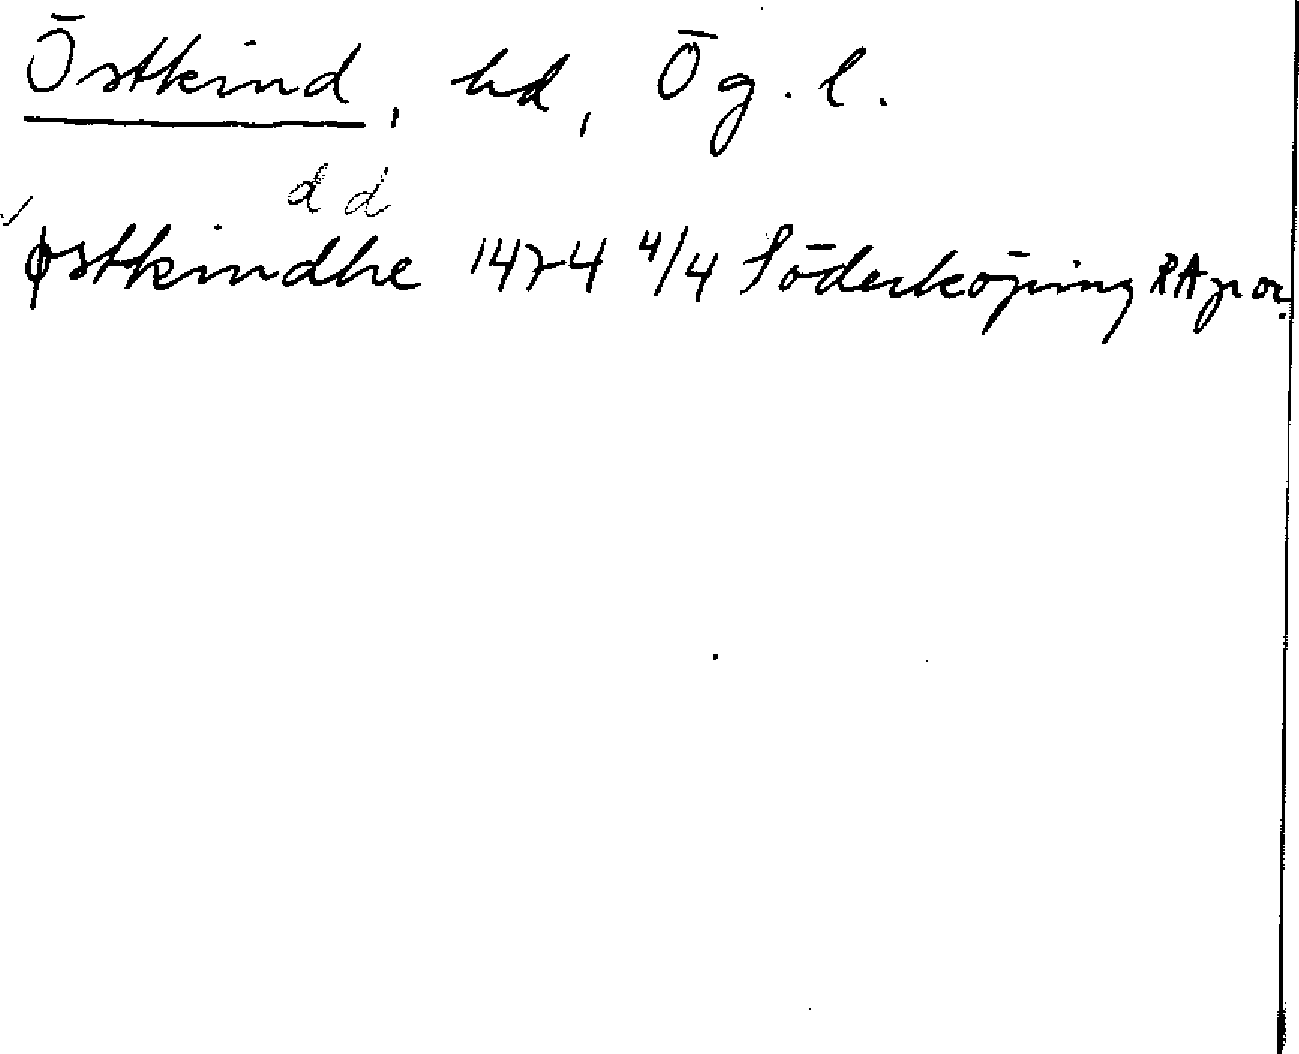 Östkind, hd, Ög. l.
d d
østkindhe 1474 4/4 Söderköping RA p or.